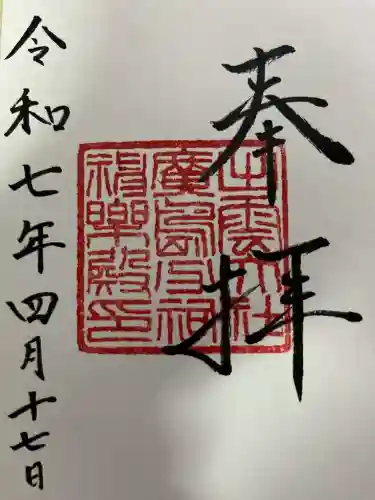 奉拝
出雲大社
廣島分祠
神楽殿印
令和七年四月十七日